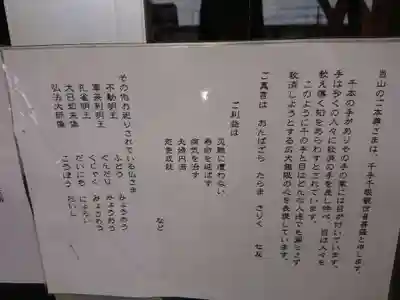 当山のご本尊さまは、千手千眼観世音菩薩と申します。
千本の手がありその手の掌には目が付いています。
手は多くの人々に救済の手を差し伸べ、目は人々を
教え導く知をあらわすとされています。
このように千の手と目はどんな人達でも漏らさず
救済しようとする広大無限の心を表現しています。
ご真言は　おんばざら　たらま　きりく　七反
ご利益は
災難に遭わない
寿命を延ばす
病気を治す
夫婦円満
恋愛成就
など
その他お祀りされている仏さま
不動明王　ふどう　みょうおう
軍荼利明王　ぐんだり　みょうおう
孔雀明王　くじゃく　みょうおう
大日如来像　だいにち　にょらい
弘法大師像　こうぼう　だいし